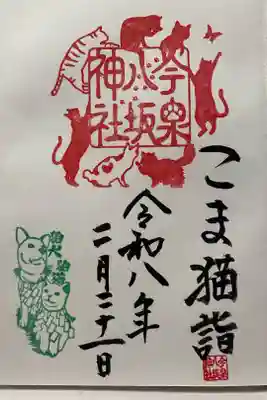 今泉
八坂
神社
こま猫詣
令和八年
二月二十一日